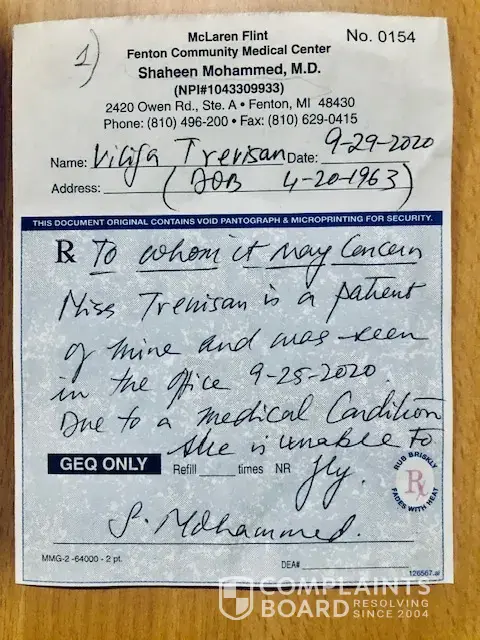 McLaren Flint
No. 0154
Fenton Community Medical Center
1)
Shaheen Mohammed, M.D.
(NPI#1043309933)
2420 Owen Rd., Ste. A • Fenton, MI 48430
Phone: (810) 496-200 • Fax: (810) 629-0415
Name: Vilija Trevisan Date: 9-29-2020
Address: (DOB 4-20-1963)
THIS DOCUMENT ORIGINAL CONTAINS VOID PANTOGRAPH & MICROPRINTING FOR SECURITY.
Rx To whom it may Concern
Miss Trevisan is a patient
of mine and was seen
in the office 9-25-2020.
Due to a medical Condition
she is unable to
GEQ ONLY Refill ____ times NR fly.
RUB BRISKLY
Rx
FADES WITH HEAT
S. Mohammed.
MMG-2 -64000 - 2 pt.
DEA#
126567.ai
COMPLAINTS
BOARD RESOLVING
SINCE 2004